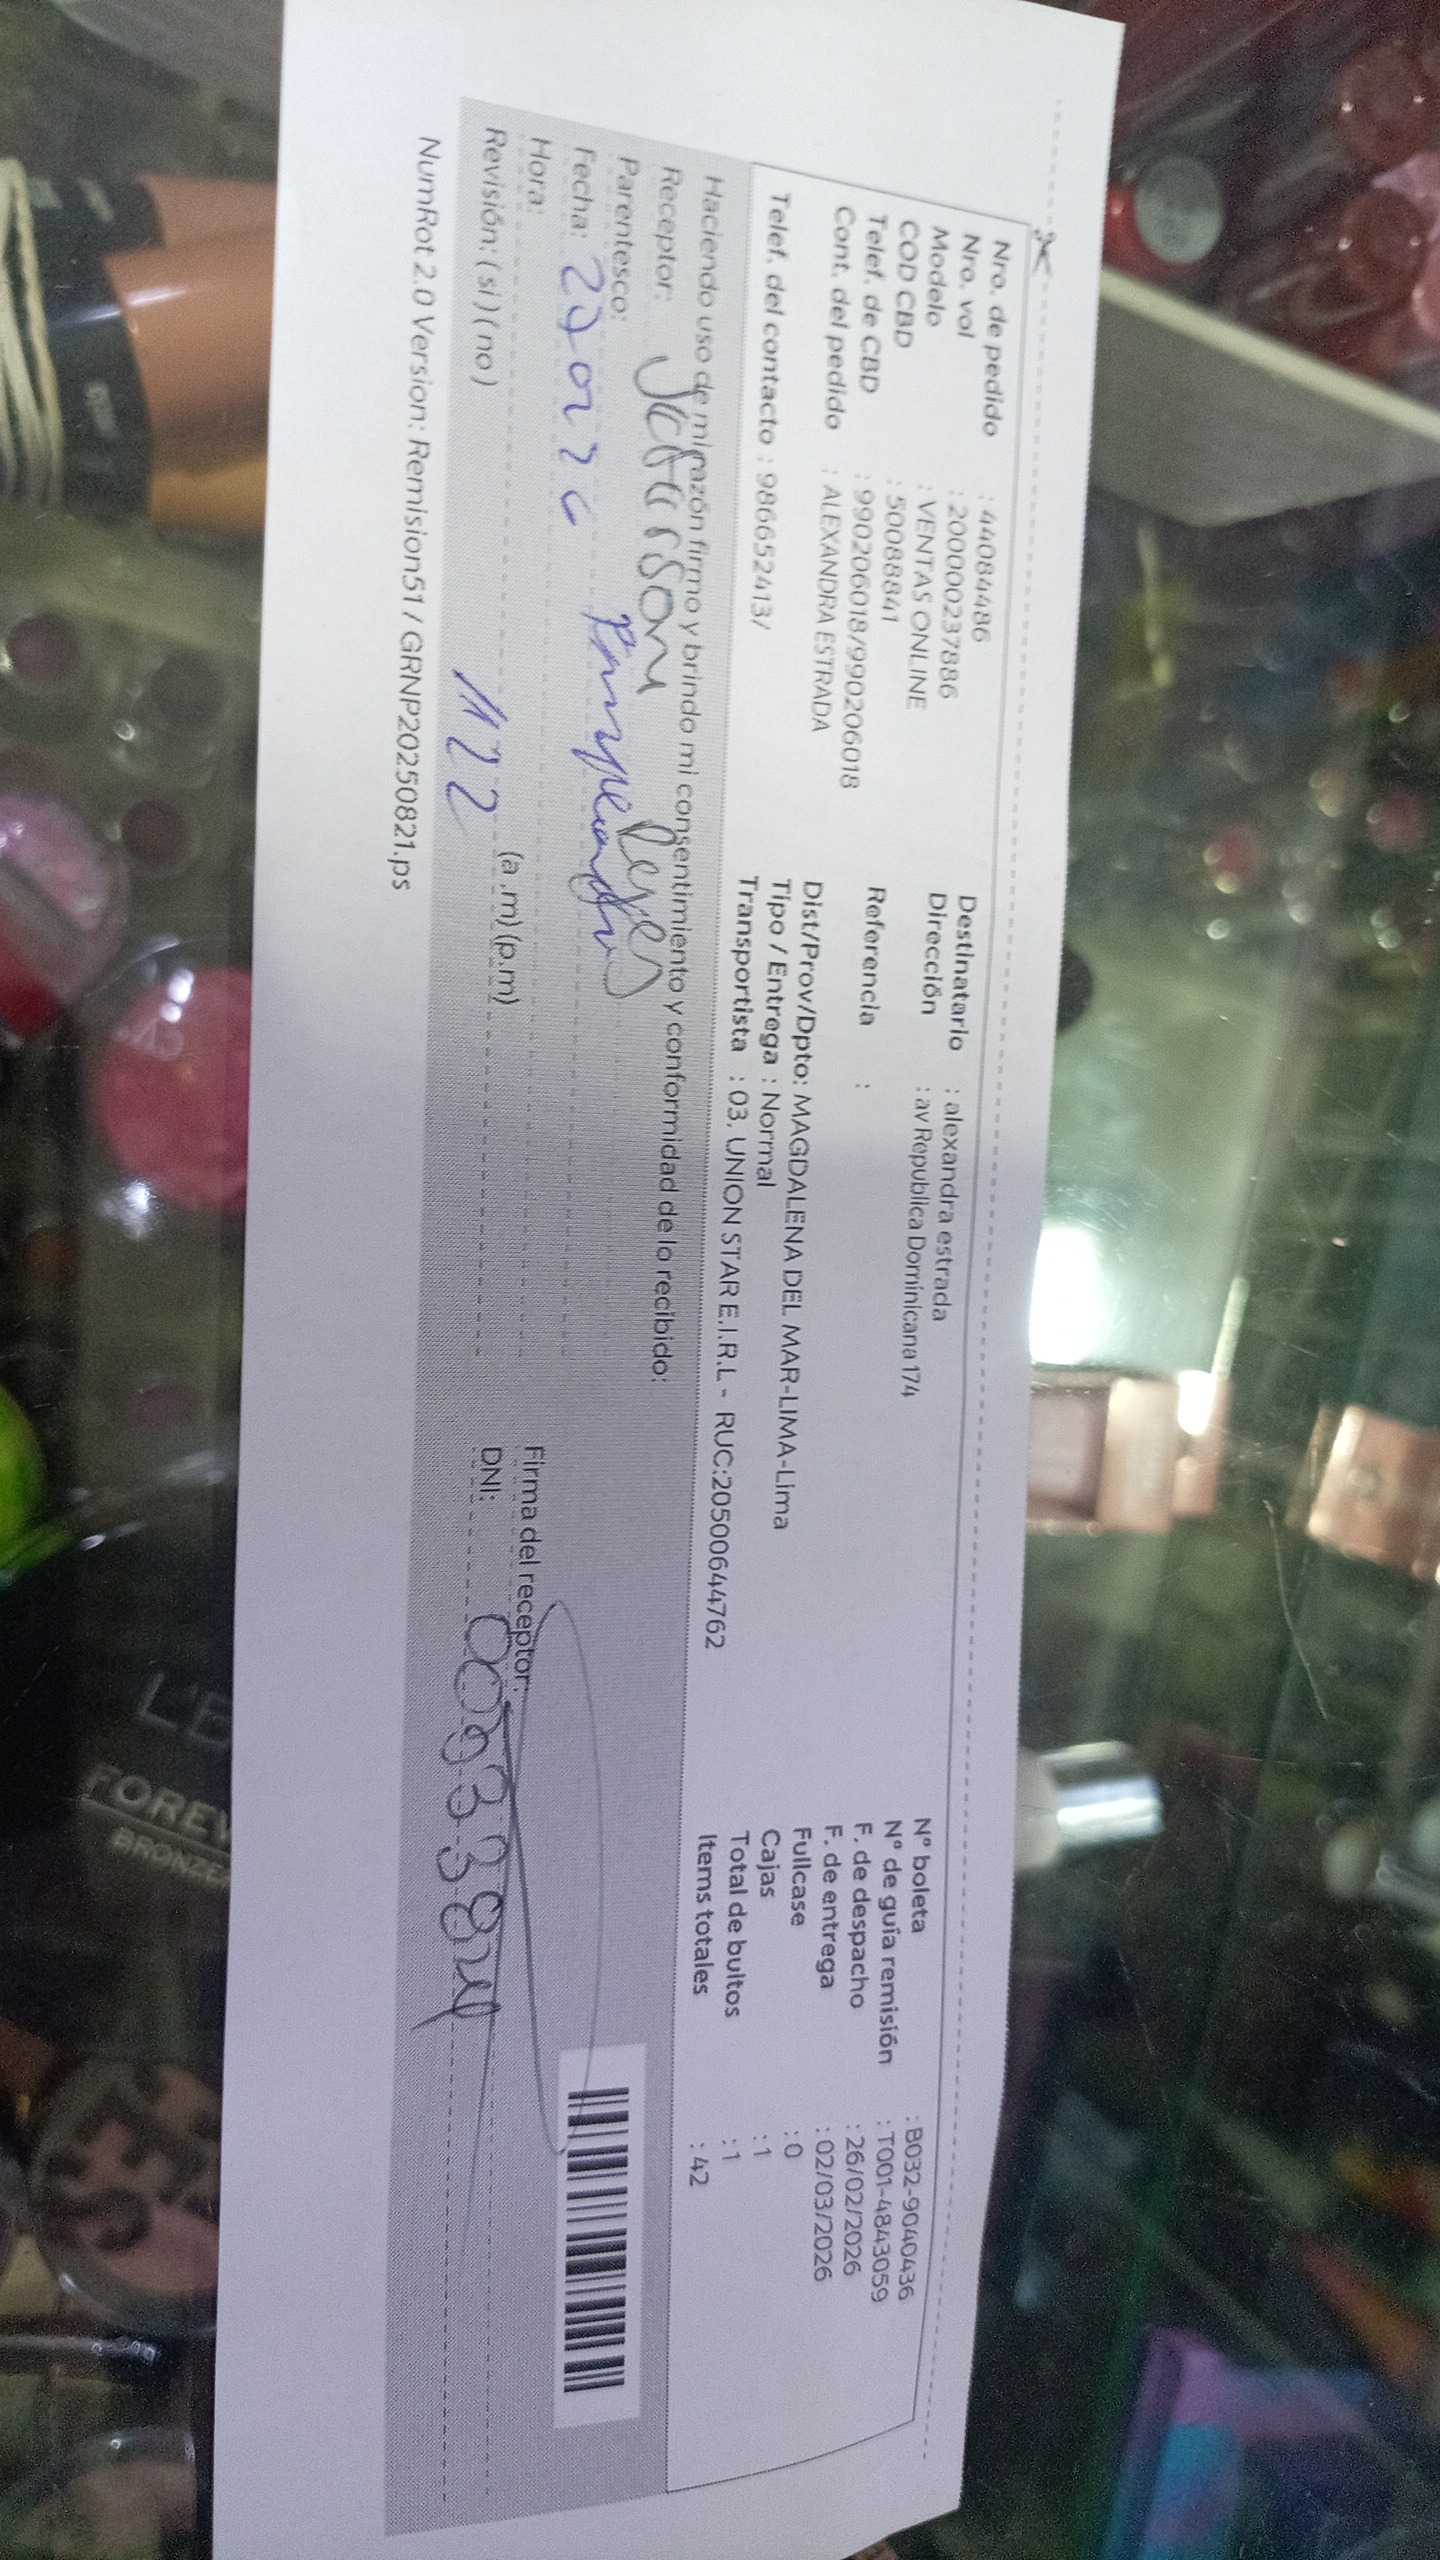 Nro. de pedido : 44084486
Nro. vol : 200000237886
Modelo : VENTAS ONLINE
COD CBD : 50088841
Telef. de CBD : 990206018/990206018
Cont. del pedido : ALEXANDRA ESTRADA
Telef. del contacto : 986652413/
Destinatario : alexandra estrada
Dirección : av Republica Dominicana 174
Referencia :
Dist/Prov/Dpto: MAGDALENA DEL MAR-LIMA-Lima
Tipo / Entrega : Normal
Transportista : 03. UNION STAR E.I.R.L - RUC:20500644762
N° boleta : B032-9040436
N° de guía remisión : T001-4843059
F. de despacho : 26/02/2026
F. de entrega : 02/03/2026
Fullcase : 0
Cajas : 1
Total de bultos : 1
Items totales : 42
Haciendo uso de mi razón firmo y brindo mi consentimiento y conformidad de lo recibido:
Receptor:
Parentesco:
Fecha:
Hora: (a .m) (p.m)
Revisión: (si) (no) 1122
Firma del receptor:
DNI:
NumRot 2.0 Version: Remision51 / GRNP20250821.ps
FOREV
BRONZE